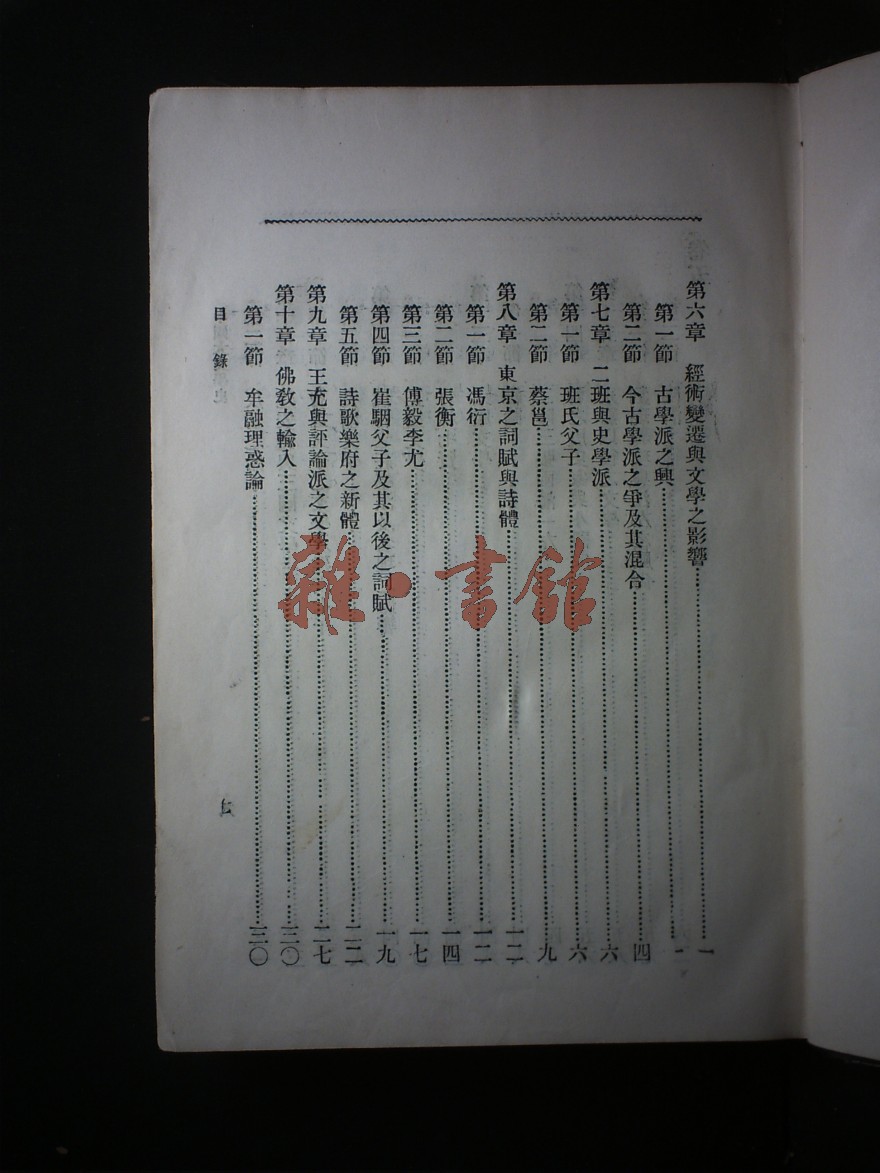 第六章 經術變遷與文學之影響……一
第一節 古學派之興……一
第二節 今古學派之爭及其混合……四
第七章 二班與史學派……六
第一節 班氏父子……六
第二節 蔡邕……九
第八章 東京之詞賦與詩體……一二
第一節 馮衍……一二
第二節 張衡……一四
第三節 傅毅李尤……一七
第四節 崔駰父子及其以後之詞賦……一九
第五節 詩歌樂府之新體……二二
第九章 王充與評論派之文學……二七
第十章 佛敎之輸入……三〇
第一節 牟融理惑論……三〇
目錄
七
雜·書館